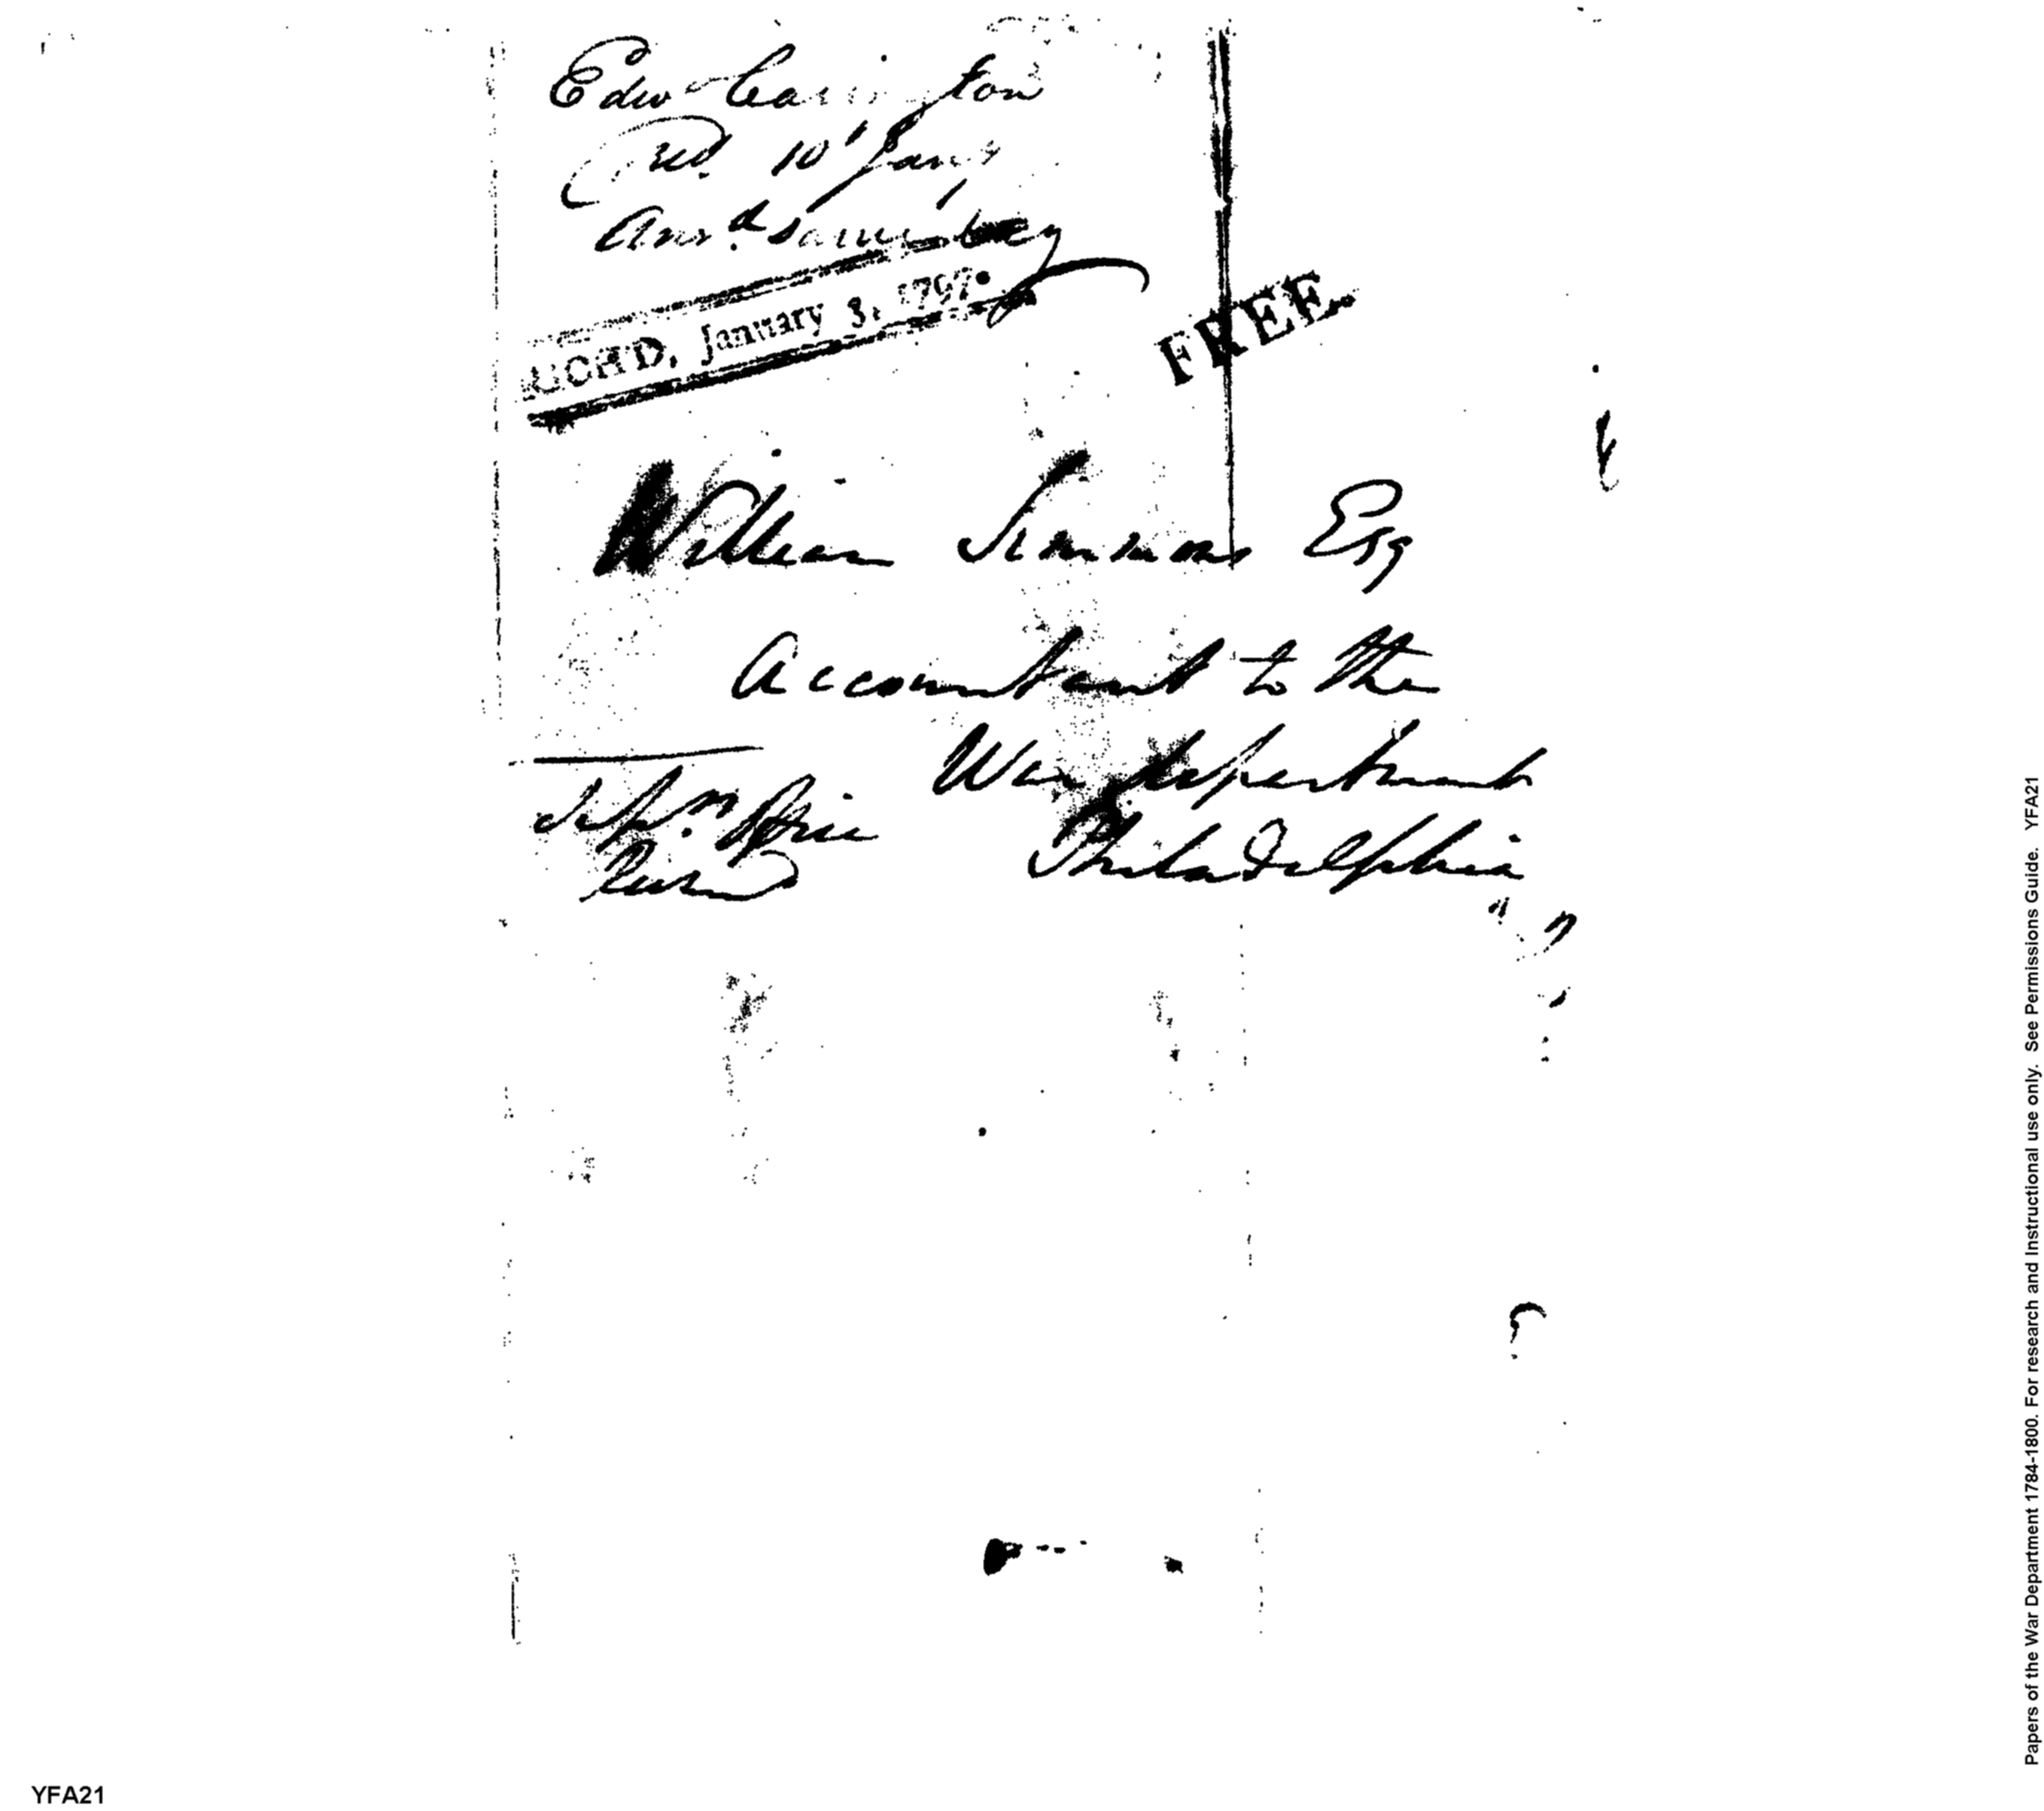 Edwd Carrington
recd. 10 Jany
Ansd. same day
RICHD, January 3, 1797.
FREE
William Simmons Esq
Accountant to the
War department
Philadelphia
YFA21
Papers of the War Department 1784-1800. For research and Instructional use only. See Permissions Guide. YFA21